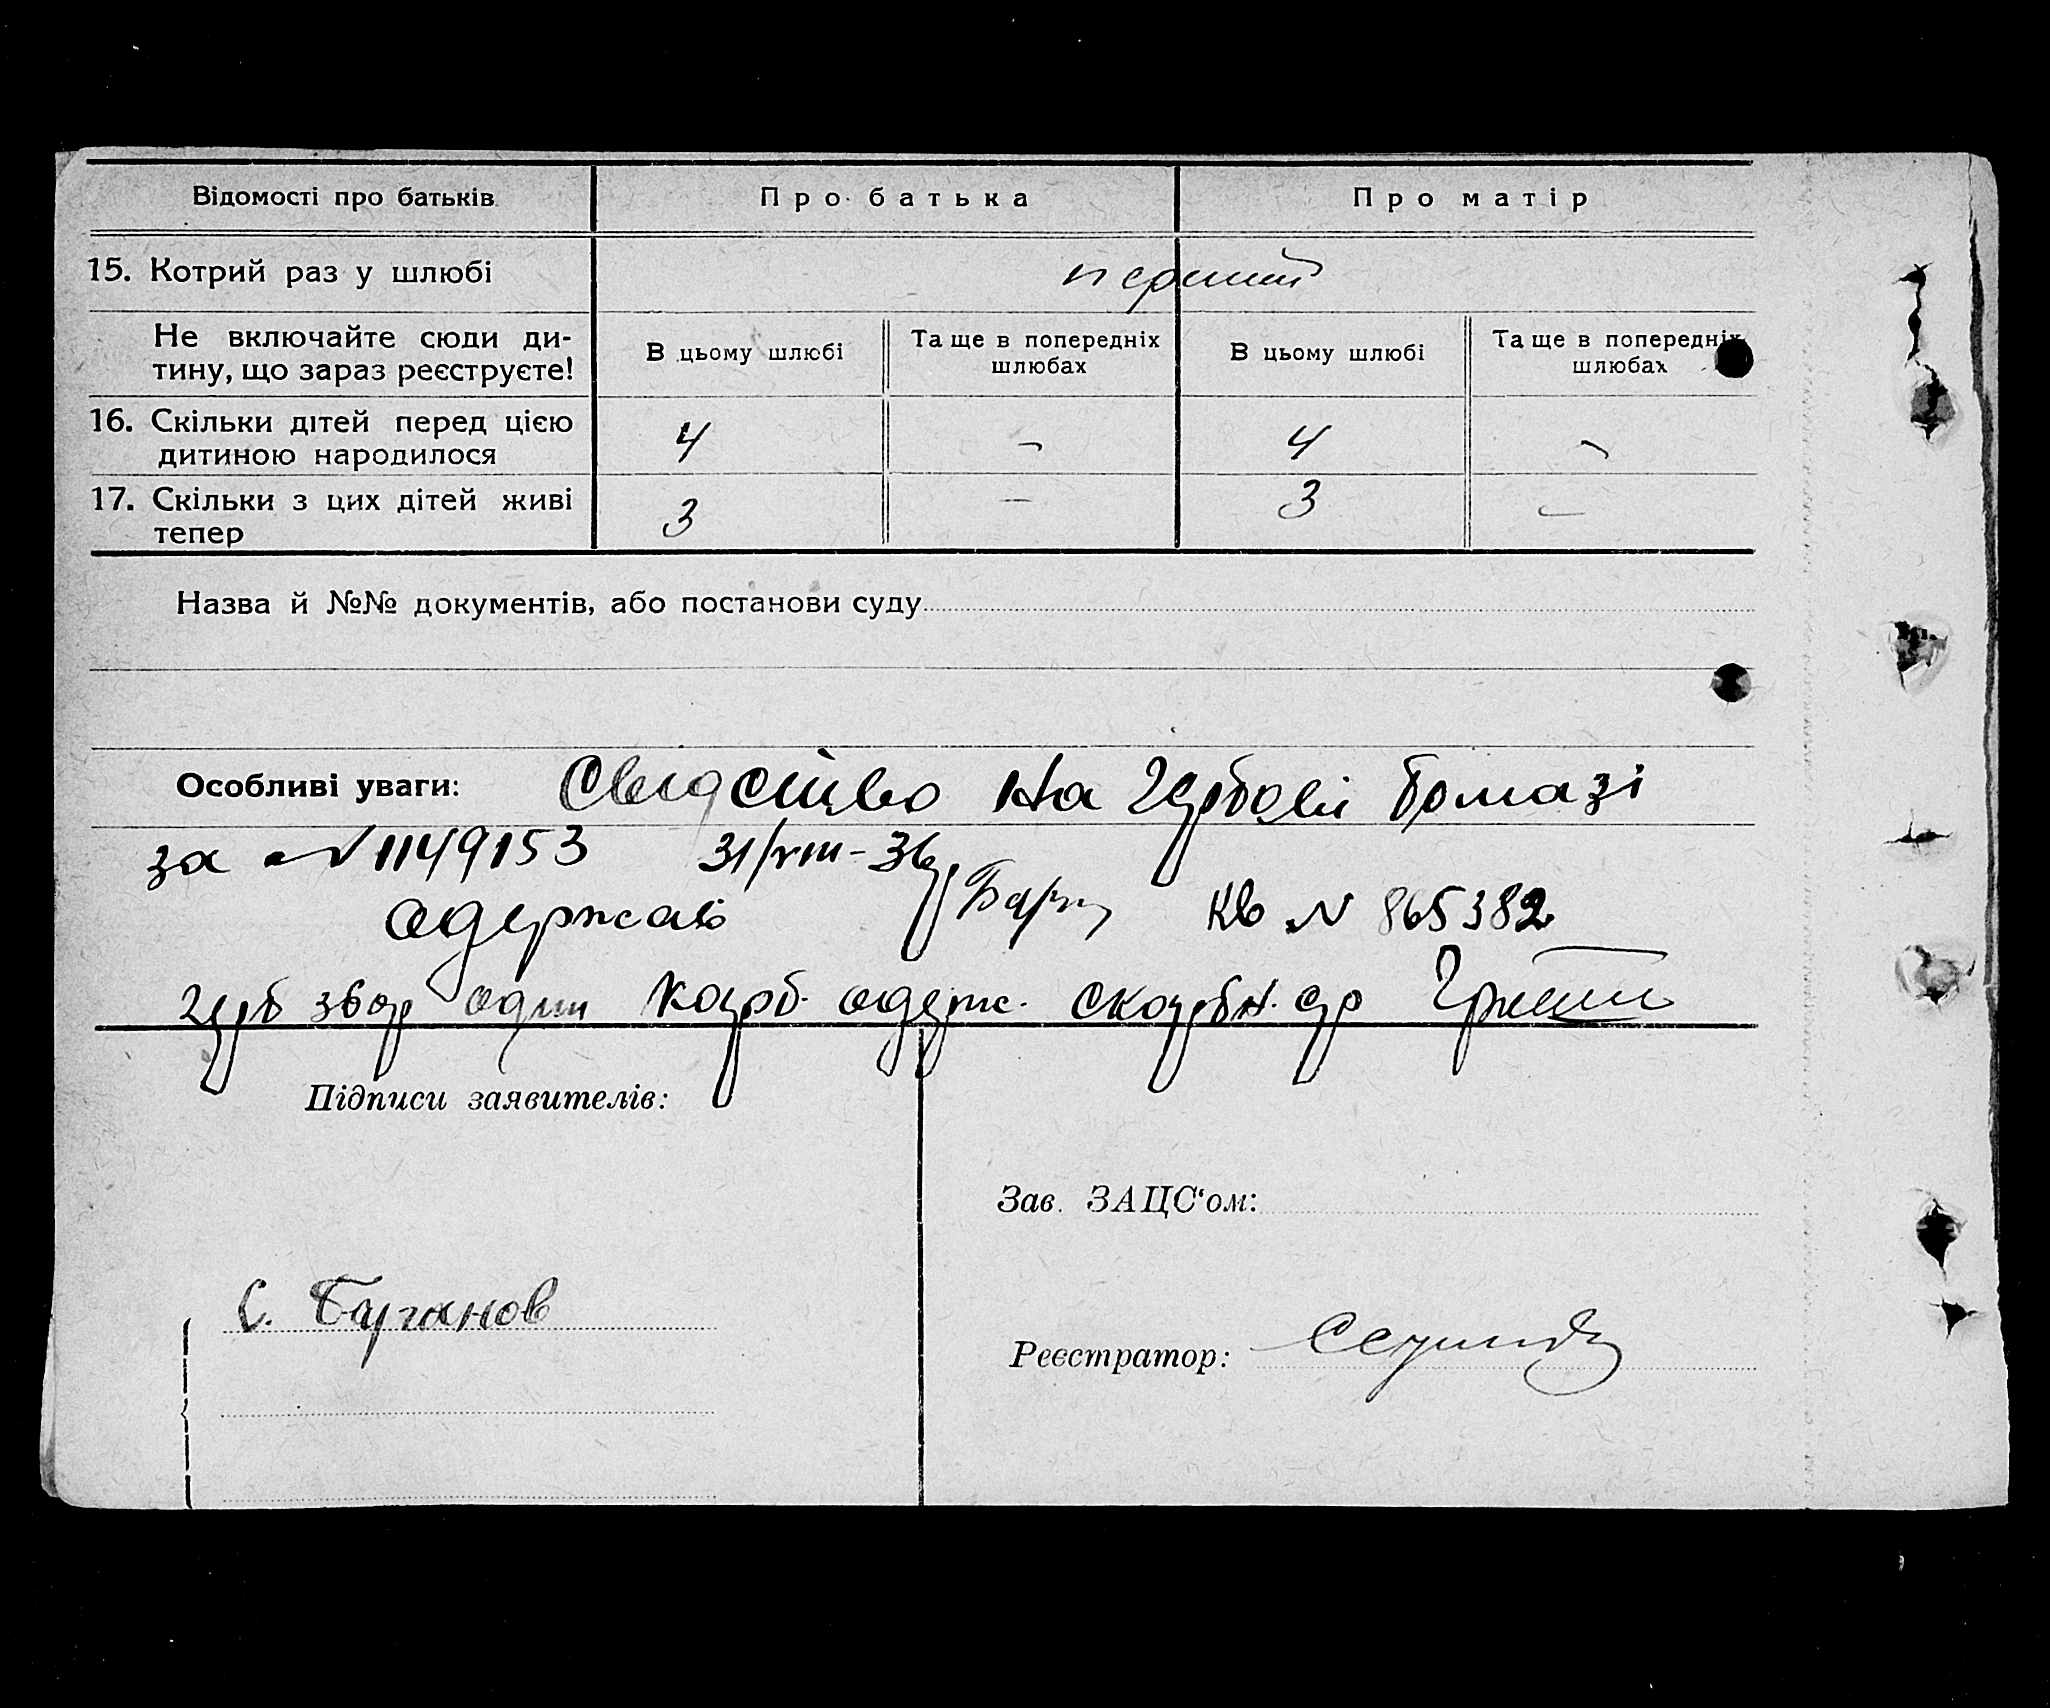 Відомості про батьків Про батька Про матір
15. Котрий раз у шлюбі перший
Не включайте сюди ди-
тину, що зараз реєструєте!
В цьому шлюбі
Та ще в попередніх
шлюбах
В цьому шлюбі
Та ще в попередніх
шлюбах
16. Скільки дітей перед цією
дитиною народилося
4 – 4 –
17. Скільки з цих дітей живі
тепер
3 – 3 –
Назва й №№ документів, або постанови суду
Особливі уваги: на гербовій
за № 1149153 31/VIII-36
одержав Кв № 865382
герб збор один карб. одерж.
Підписи заявителів:
Зав. ЗАЦС'ом:
С.
Реєстратор: